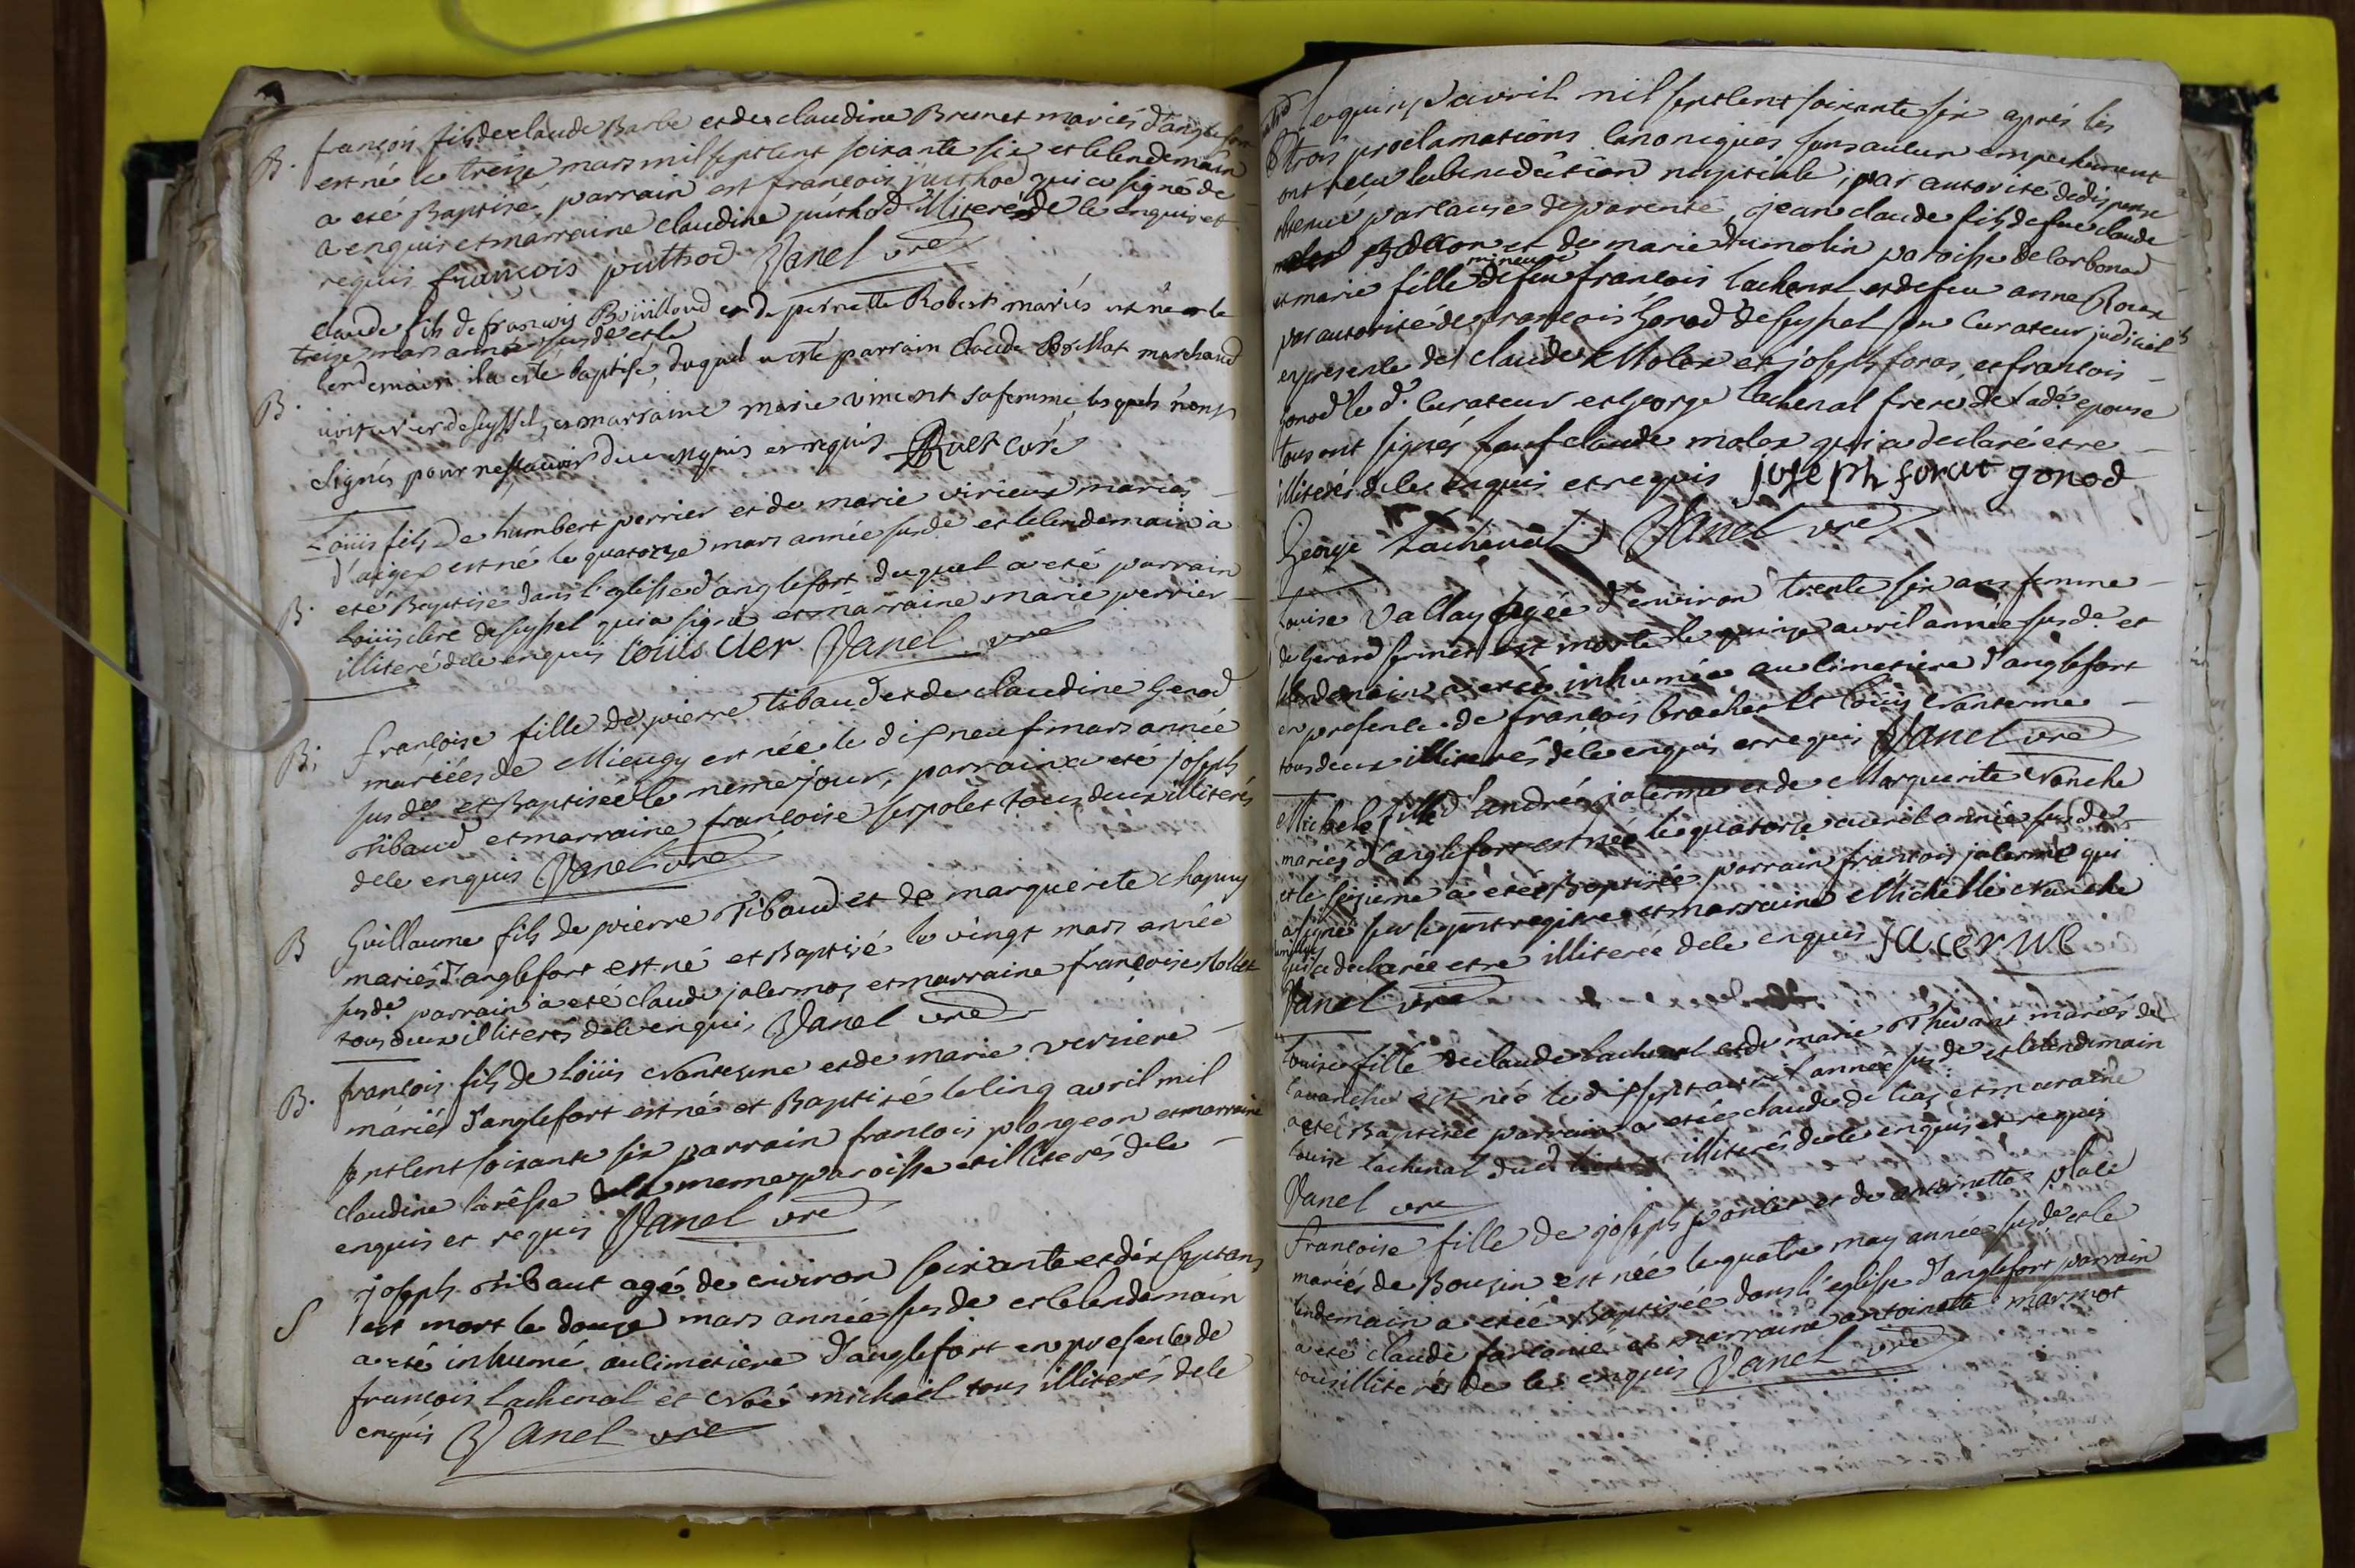 B. françois fils de claude Barbe et de claudine Brunet mariés d'anglefort
est né le treize mars mil sept cent soixante six et le lendemain
a eté Baptisé, parrain est françois puthod qui a signé de
ce enquis et marraine claudine puthod illiterée de ce enquis et
requis françois puthod Janel vre
claude fils de francois Bouilloud et de pernette Robert mariés est né le
treize mars année susde et le
lendemain il a este baptisé, duquel a esté parrain Claude Boillat marchand
B.
voiturier de seyssel, et marraine marie vincent sa femme, lesquels n'ont
signés pour ne sçavoir de ce enquis et requis Ruet curé
Loüis fils de humbert perrier et de marie virieux mariés
d'aigex est né le quatorze mars année susde et le lendemain a
B. eté Baptisé dans l'eglisse d'anglefort duquel a eté parrain
Loüis clerc de seyssel qui a signé et marraine marie perrier
illiteré de ce enquis loüis cler Janel vre
B. francoise fille de pierre tibaud et de claudine Genod
mariées de Mieugy est née le dix neuf mars année
susde et Baptisée le meme jour, parrain a eté joseph
Tibaud et marraine francoise serpolet tous deux illiterés
de ce enquis Janel vre
B Guillaume fils de pierre Tibaud et de marguerite chapuy
mariés d'anglefort est né et Baptisé le vingt mars année
susde parrain a eté claude jalermoz et marraine françoise Mollet
tous deux illiterés de ce enqui, Janel vre
B. françois fils de Loüis Nanterme et de marie verniere
mariés d'anglefort est né et Baptisé le cinq avril mil
sept cent soixante six parrain francois plongeon et marraine
claudine laresse de la meme paroisse et illiterés de ce
enquis et requis Janel vre
joseph Tibaut agé de environ soixante et dix sept ans
S est mort le douze mars année susde et le lendemain
a eté inhumé au cimetiere d'anglefort en presence de
francois Lachenal et Noé michail tous illiterés de ce
enquis Janel vre
Le quinze avril mil sept cent soixante six aprés les
trois proclamations canoniques sans aucun empechement
ont reçu la benediction nuptiale, par autorité de dispense
obtenue par cause de parenté, jean claude fils de feu claude
et de marie dumolin paroisse de Corbonod
mineure
et marie fille de feu francois Lachenal et de feu anne Roux
par autorité de francois Gonod de seyssel son Curateur judiciel
en presence de claude Molex et joseph foras, et francois
gonod le d. Curateur et George Lachenal frere de lade epouse
tous ont signés sauf claude molex qui a declaré etre
illiteré de ce enquis et requis joseph forat gonod
George Lachenal Janel vre
Louise Vallay agée d'environ trente six ans femme
de Gerard fermet est morte le quinze avril année susde et
le lendemain a eté inhumée au cimetiere d'anglefort
en presence de francois brachet et Loüis Nanterme
tous deux illiterés de ce enquis et requis Janel vre
Michele fille d'andré jalerme et de Marguerite Nanche
mariés d'anglefort est née le quatorze avril année susde
et le seizieme a eté Baptisée parrain francois jalerme qui
a signé sur le pnt registre et marraine Michelle Nanche
qui a declarée etre illiterée de ce enquis jacerme
Janel vre
Louise fille de claude Lachenal et de marie Thivant mariés de
Lavanche est née le dix sept avril année susde et le lendemain
a eté Baptisée parrain a eté claude de liaz et maraine
Louise Lachenal dud. lieu illiterés de ce enquis et requis
Janel vre
Francoise fille de joseph ponlet et de antoinette place
mariés de Bouzin est née le quatre may année susde et le
lendemain a eté Baptisée dans l'eglisse d'anglefort parrain
a eté claude farconié et marraine antoinette marmot
tous illiterés de ce enquis Janel vre